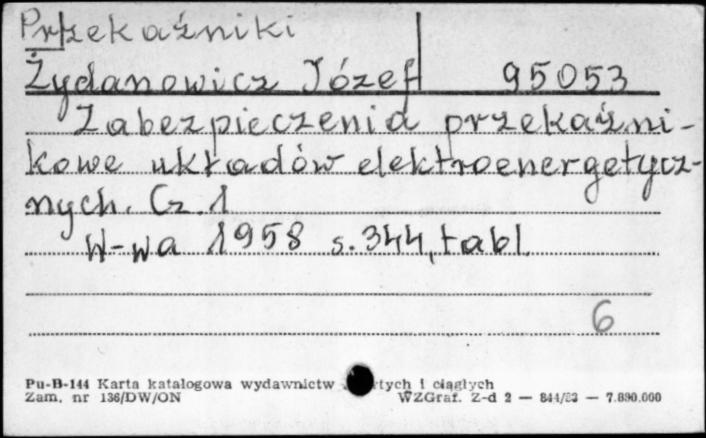 Przekaźniki
Żydanowicz Józef 95053
Zabezpieczenia przekaźni-
kowe układów elektroenergetycz-
nych. Cz. 1
W-wa 1958 s. 344, tabl.
6
Pu-B-144 Karta katalogowa wydawnictw i ciągłych
Zam. nr 136/DW/ON WZGraf. Z-d 2 — 844/83 — 7.890.000